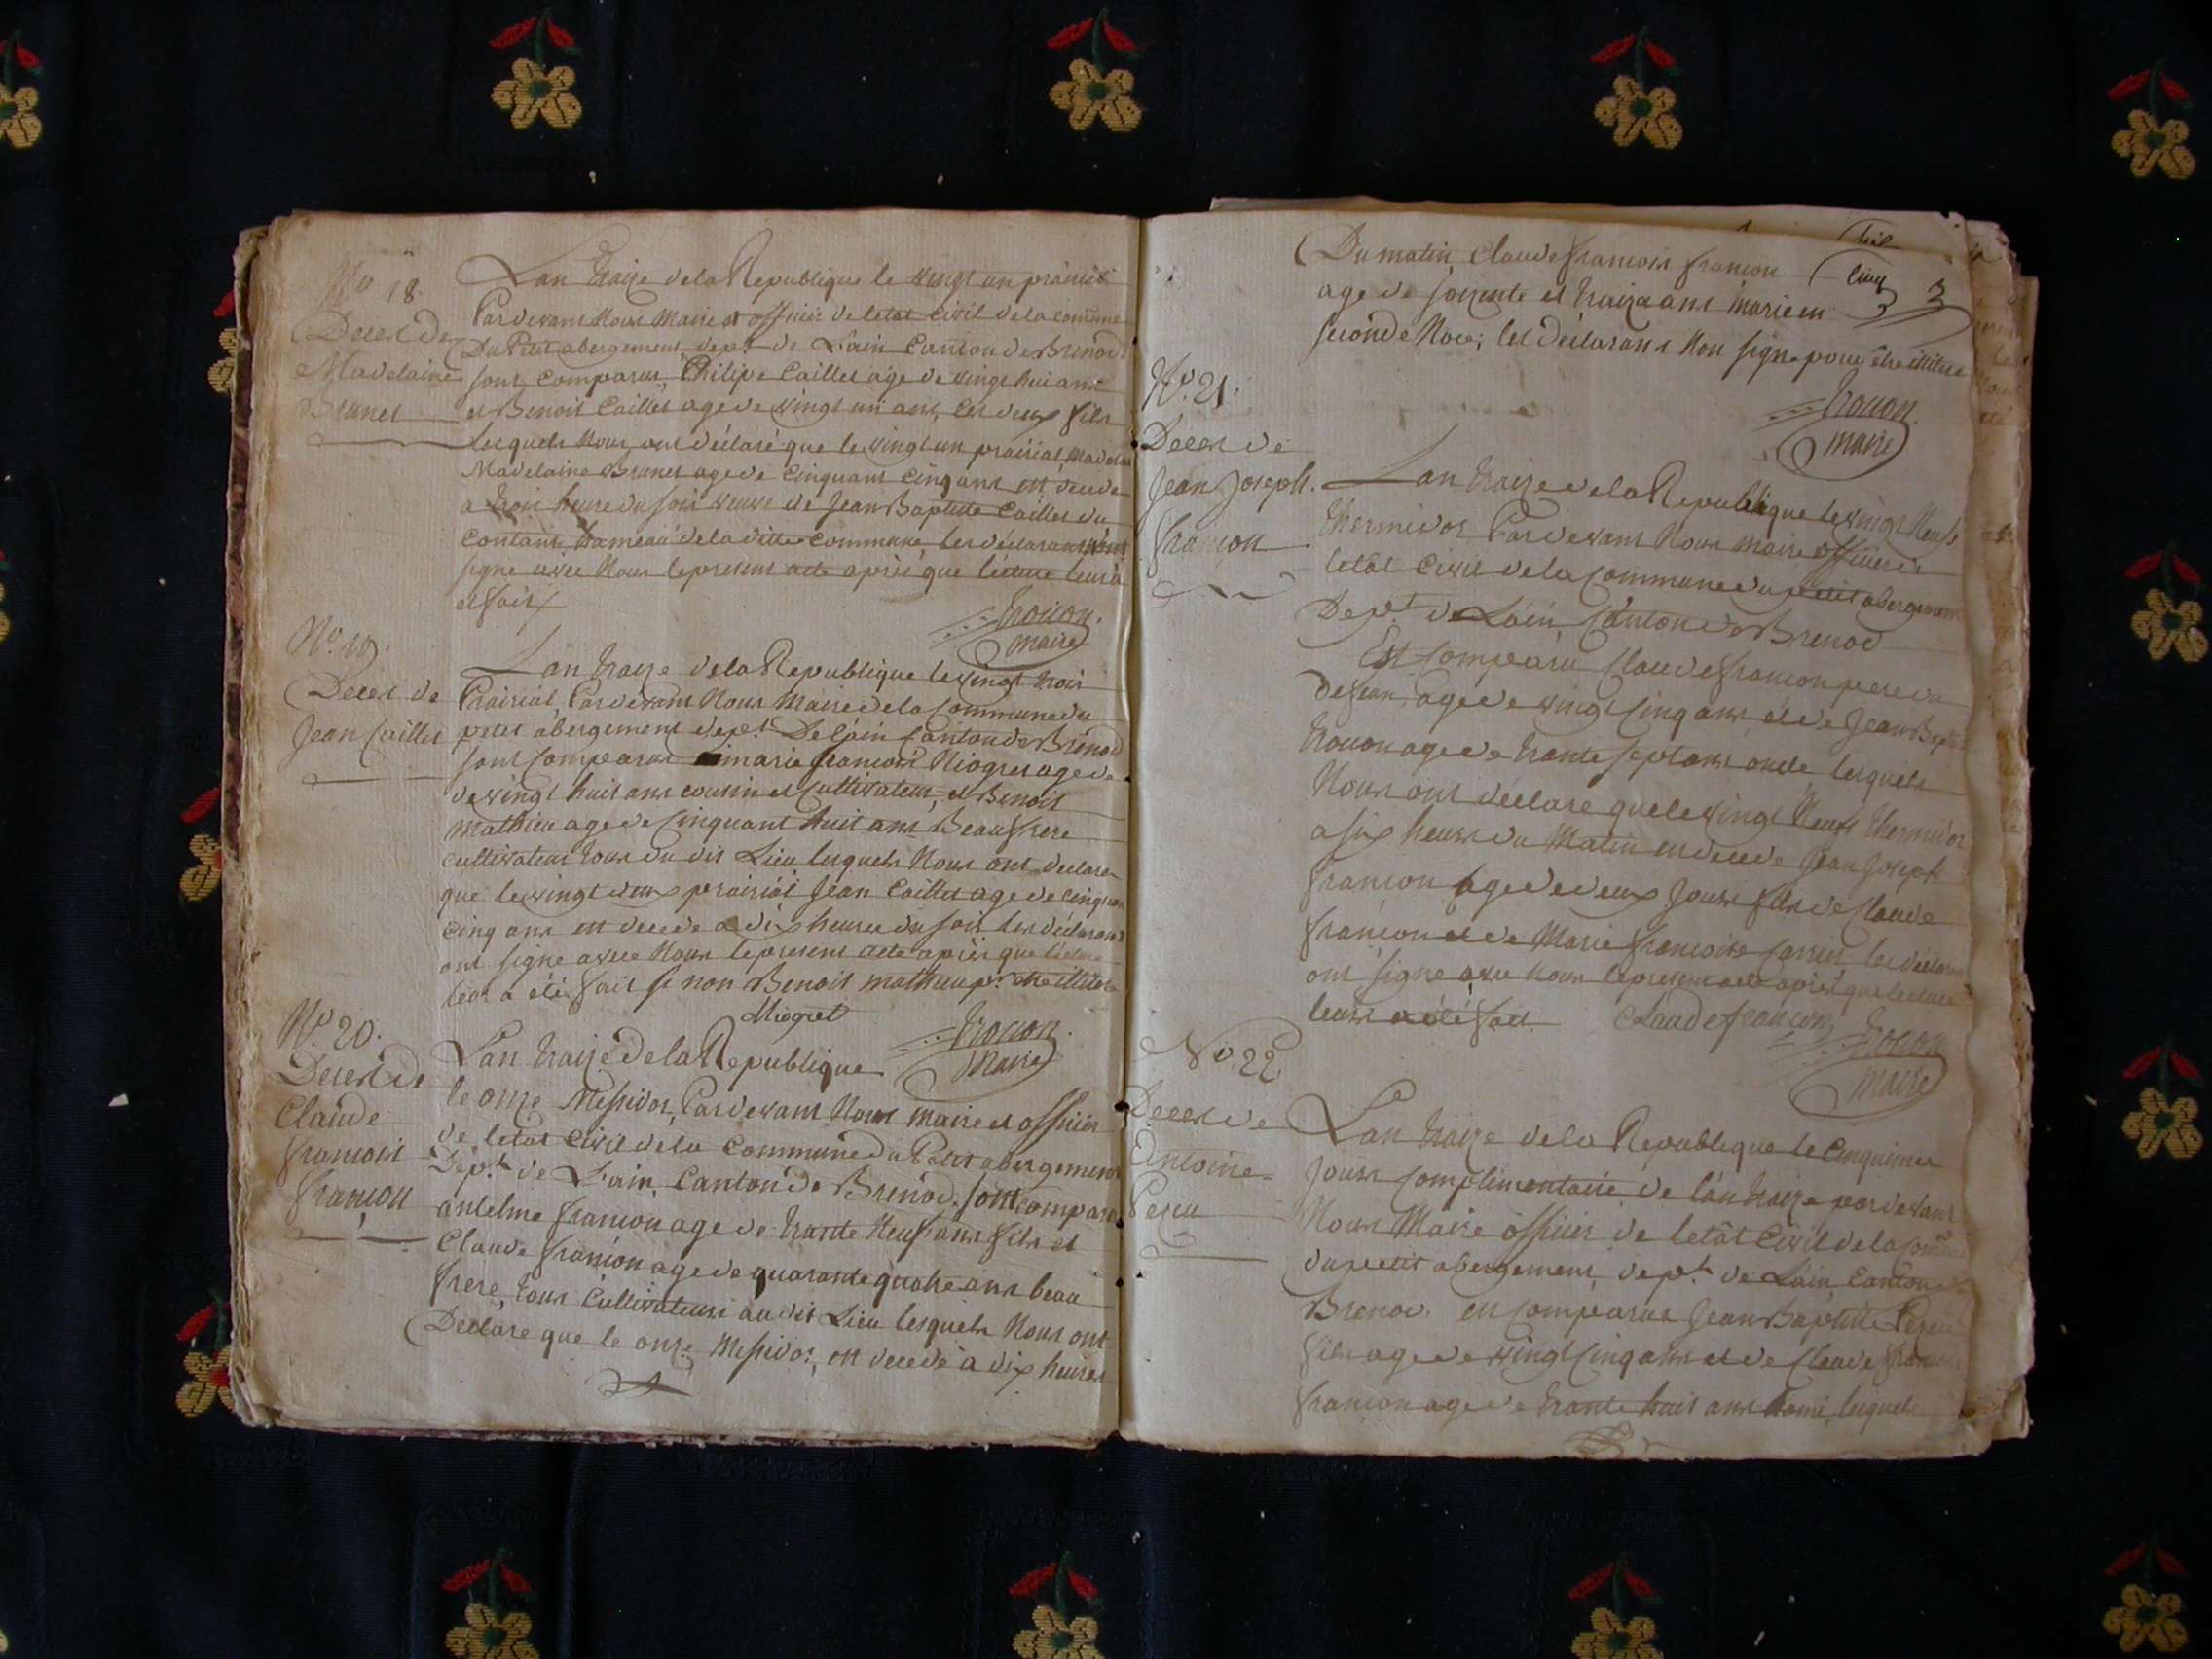 No 18.
Deces de
Madelaine
Brunet
Lan traize de la Republique le vingt un prairial
Pardevant Nous Maire et officier de letat Civil de la comune
Du Petit abergement dept. de Lain Canton de Brenod
sont comparus, Philipe Caillet age de vingt huit ans
et Benoit Caillet age de vingt un ans, les deux fils
lesquels Nous ont déclaré que le vingt un prairial
Madelaine Brunet age de Cinquant Cinq ans est decede
a trois heure du soir veuve de Jean Baptiste Caillet du
hameau de la ditte commune, les déclarans
signe avec Nous le present acte après que lecture leur a
et fait
trouon.
maire
No. 19.
Deces de
Jean Caillet
Lan traize de la Republique le vingt trois
Prairial, Pardevant Nous Maire de la Commune du
petit abergement dept. De Lain Canton de Brenod
sont Comparus marie francois Miogret age de
de vingt huit ans cousin et Cultivateur, et Benoit
Mathieu age de Cinquant huit ans Beau frere
cultivateur tous du dit Lieu lesquels Nous ont declare
que le vingt deux prairial Jean Caillet age de cinquant
cinq ans est decede a dix heures du soir les déclarans
ont signe avec Nous le present acte après que lecture
leur a été fait si non Benoit mathieu pr. etre illitere
Miogret
trouon.
Maire
No. 20.
Deces de
Claude
francois
françon
Lan traize de la Republique
le onze Messidor, Pardevant Nous maire et officier
de letat Civil de la Commune du Petit abergement
Dept. de Lain, Canton de Brenod. sont comparu
antelme françon age de trante Neuf ans fils et
Claude françon age de quarante quatre ans beau
frere, tous Cultivateurs au dit Lieu lesquels Nous ont
Declare que le onze Messidor, est decede à dix heures
Du matin, Claude francois françon
age de soixante et traize ans marie en
seconde Noce, les declarans Non signe pour être illitere
trouon.
maire
No. 21.
Deces de
Jean Joseph.
françon
Lan traize de la Republique le vingt Neufs
thermidor Pardevant Nous maire officier de
letat Civil de la Commune du petit abergement
Dept. de Lain, Canton de Brenod
Est comparu Claude françon pere du
defunt, age de vingt cinq ans et de Jean Bapte
trouon age de trante sept ans oncle lesquels
Nous ont déclare que le vingt Neufs thermidor
a six heures du Matin est decede Jean Joseph
françon age de deux Jours fils de Claude
françon et de Marie françoise les déclarans
ont signe avec nous le present acte après que lecture
leurs a été fait. Claude françon
trouon
maire
No. 22
Deces de
Antoine
Lan traize de la Republique le Cinquieme
Jours Complimentaire de lan traize pardevant
Nous Maire officier de letat Civil de la Comune
du petit abergement, dept. de Lain, Canton de
Brenod. est comparus Jean Baptiste
fils age de vingt Cinq ans et de Claude françois
françon age de trante huit ans lesquels